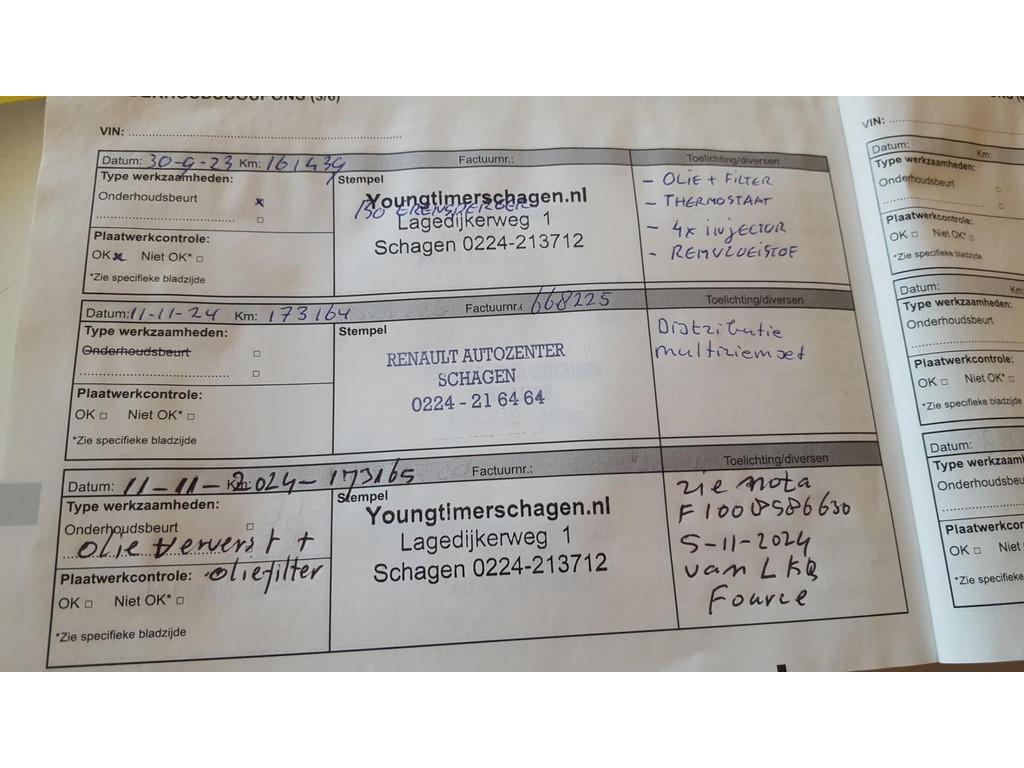 VIN:
Datum: 30-9-23 Km: 161439 Factuurnr.: Toelichting/diversen
Type werkzaamheden:
Onderhoudsbeurt x
Plaatwerkcontrole:
OK x Niet OK*
*Zie specifieke bladzijde
Stempel
Youngtimerschagen.nl
Lagedijkerweg 1
Schagen 0224-213712
- OLIE + FILTER
- THERMOSTAAT
- 4x INJECTOR
- REMVLOEISTOF
Datum: 11-11-24 Km: 173164 Factuurnr.: 668225 Toelichting/diversen
Type werkzaamheden:
Onderhoudsbeurt
Plaatwerkcontrole:
OK Niet OK*
*Zie specifieke bladzijde
Stempel
RENAULT AUTOZENTER
SCHAGEN
0224 - 21 64 64
Distributie
multiriemset
Datum: 11-11-2024-173165 Factuurnr.: Toelichting/diversen
Type werkzaamheden:
Onderhoudsbeurt
olie ververst +
Plaatwerkcontrole: oliefilter
OK Niet OK*
*Zie specifieke bladzijde
Stempel
Youngtimerschagen.nl
Lagedijkerweg 1
Schagen 0224-213712
zie nota
F1008586630
5-11-2024
van LKQ
Fource
VIN:
Datum: Km:
Type werkzaamheden:
Onderhoudsbeurt
Plaatwerkcontrole:
OK Niet OK*
*Zie specifieke bladzijde
Datum: Km:
Type werkzaamheden:
Onderhoudsbeurt
Plaatwerkcontrole:
OK Niet OK*
*Zie specifieke bladzijde
Datum:
Type
Plaatwerkcontrole:
OK Niet
*Zie specifieke